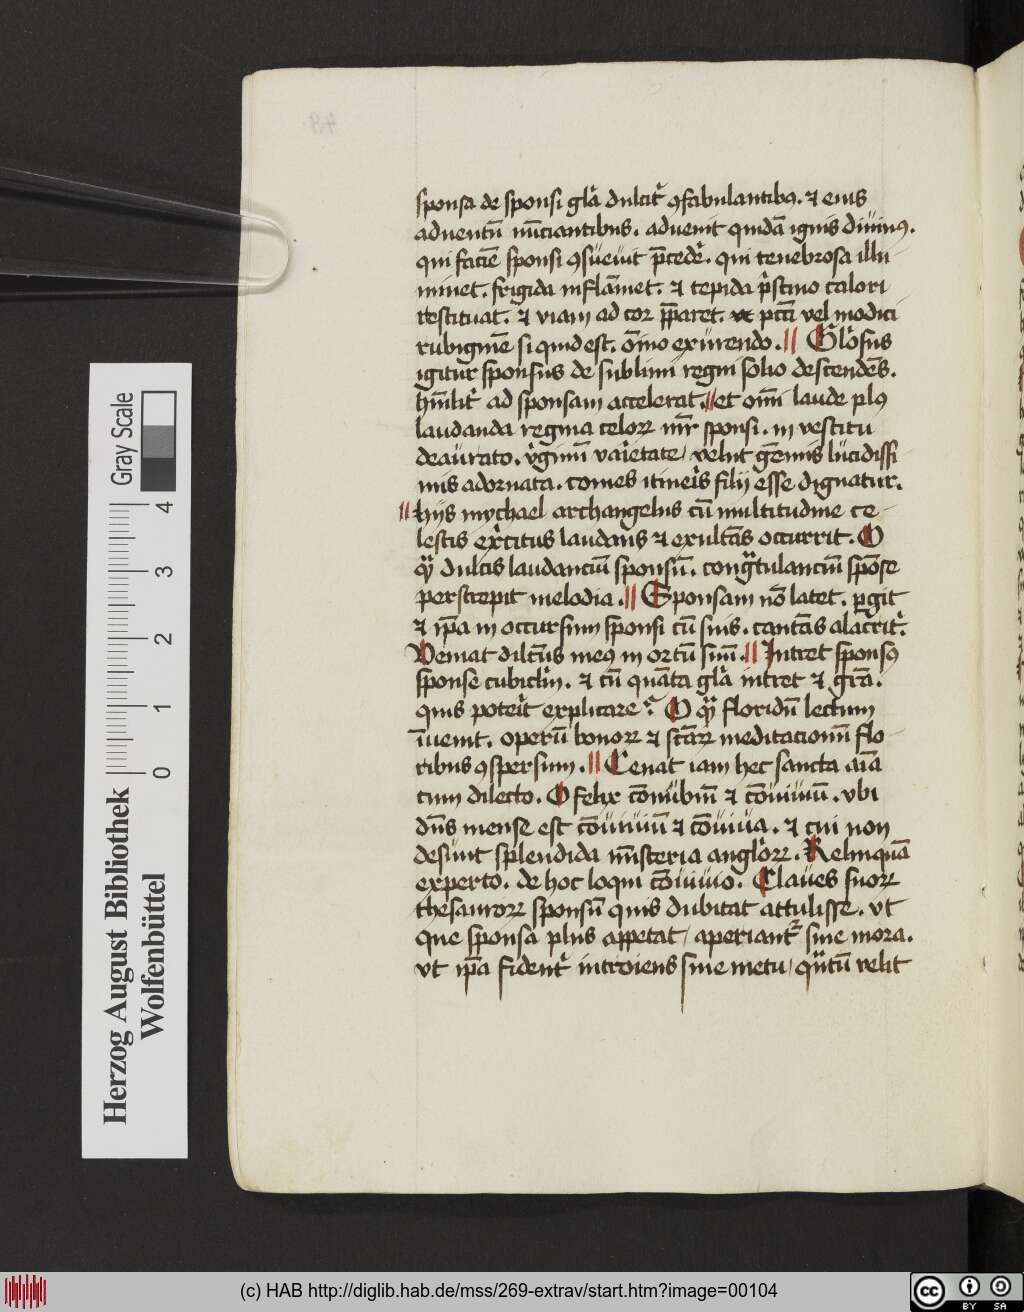 sponsa de sponsi gl̄a dulcit̄ ꝯfabulantibꝰ. ⁊ eius
aduentū nūciantibus. aduenit quidā ignis diuinꝰ.
qui faciē sponsi ꝯsueuit p̄cede᷑. qui tenebrosa illu
minet. frigida inflāmet. ⁊ tepida p̄stino calori
restituat. ⁊ viam ad cor p̄paret. pctī vel modici
rubiginē si quid est. oīno exurendo. Gl̄osus
igitur sponsus de sublimi regni solio descendēs.
hūilit̄ ad sponsam accelerat. et omī laude plꝰ
laudanda regina celoꝝ mr̄ sponsi. in vestitu
deaurato. v̓ginū va᷑ietate/ velut gēmis lucidissi
mis adornata. comes itine᷑is filij esse dignatur.
hijs mychael archangelus cū multitudine ce
lestis ex̄citus laudans ⁊ exultās occurrit. O
qͣ᷑ dulcis laudanciū sponsū. congͣtulanciū spōse
perstrepit melodia. Sponsam nō latet. ꝑgit
⁊ ip̄a in occursum sponsi cū suis. cantās alac̄rit᷑.
Veniat dilc̄us meꝰ in ortū suū. Intret sponsꝰ
sponse cubiclm̄. ⁊ cū quāta gl̄a intret ⁊ gr̄a.
quis pote᷑it explicare? O qͣ᷑ floridū lectum
īuenit. operū bonoꝝ ⁊ sctāꝝ meditacionū flo
ribus ꝯspersum. Cenat iam hec sancta aīa
cum dilecto. O felix cōnubiū ⁊ cōuiuiū. vbi
dn̄s mense est cōuiuiū ⁊ cōuiua. ⁊ cui non
desunt splendida mīsteria angl̓oꝝ. Relinquā
experto. de hoc loqui cōuiuio. Claues suoꝝ
thesauroꝝ sponsū quis dubitat attulisse. vt
que sponsa plus appetat/ aperiant᷑ sine mora.
vt ip̄a fident̓ introiens sine metu/ qͣntū velit
Herzog August Bibliothek
Wolfenbüttel
Gray Scale
0 1 2 3 4
(c) HAB http://diglib.hab.de/mss/269-extrav/start.htm?image=00104
cc BY SA